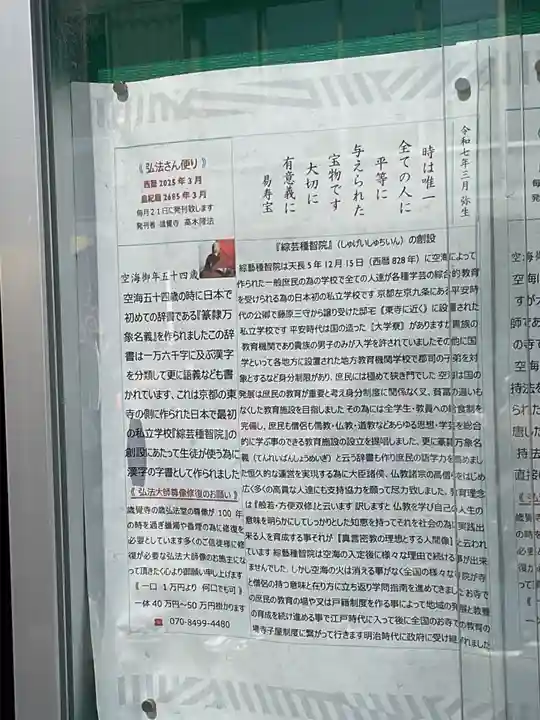 令和七年三月 弥生
時は唯一
全ての人に
平等に
与えられた
宝物です
大切に
有意義に
易寿宝
《 弘法さん便り 》
西暦 2025 年 3 月
皇紀暦 2685 年 3 月
毎月21日に発刊致します
空海御年五十四歳
空海五十四歳の時に日本で
初めての辞書である『篆隷万
象名義』を作られましたこの辞
書は一万六千字に及ぶ漢字
を分類して更に語義なども書
かれています、これは京都の東
寺の側に作られた日本で最初
の私立学校『綜芸種智院』の
創設にあたって生徒が使う為に
漢字の字書として作られました
《 弘法大師尊像修復のお願い 》
歳覚寺の歳弘法堂の尊像が 100 年
の時を過ぎ破損や亀裂の為に修復を
必要としています多くのご信徒様に修
復が必要な弘法大師像のお施主になっ
て頂きたく心よりお願い申し上げます
《 一口 1 万円より 何口でも可 》
一体 40 万円~50 万円掛かります
☎ 070-8499-4480
『綜芸種智院』(しゅげいしゅちいん) の創設
綜藝種智院は天長 5 年 12 月 15 日 (西暦 828 年) に空海によって
作られた一般庶民の為の学校で全ての人達が各種学芸の綜合的教育
を受けられる為の日本初の私立学校です 京都左京九条にある平安時
代の公卿で藤原三守から譲り受けた邸宅『東寺に近く』に設置された
私立学校です 平安時代は国の造った『大学寮』がありますが貴族の
教育機関であり貴族の男子のみが入学を許されていましたその他に国
学として各地方に設置された地方教育機関学校で郡司の子弟を対
象とするなど身分制限があり、庶民には極めて狭き門でした 空海は国の
発展は庶民の教育が重要と考え身分制度に関係なく又、貧富の違いも
なくした教育施設を目指しました その為には全学生・教員への給食制を
完備し、庶民も僧侶も儒教・仏教・道教などあらゆる思想・学芸を総合
的に学ぶ事のできる教育施設の設立を提唱しました、更に篆隷万象名
義 (てんれいばんしょうめいぎ) と云う辞書も作り庶民の語学力を高めまし
た恒久的な運営を実現する為に大臣諸侯、仏教諸宗の高僧をはじめ
広く多くの高貴な人達にも支持協力を願って尽力致しました、教育理念
は『般若・方便双修』と云います 訳しますと 仏教を学び自己の人生の
意味を明らかにしてしっかりとした知恵を持ってそれを社会の為に実践出
来る人を育成する事それが『真言密教の理想とする人間像』と云われ
ています 綜藝種智院は空海の入定後に様々な理由で続ける事が出来
ませんでした、しかし空海の火は消える事がなく全国の様々な寺院が寺
と僧侶の持つ意味と在り方に立ち返り学問指南を進めてきましたお寺で
の庶民の教育の場や又は戸籍制度を作る事によって地域の発展と教養
の育成を続け進める事で江戸時代に入って後に全国のお寺での教育の
場寺子屋制度に繋がって行きます明治時代に政府に受け継がれました